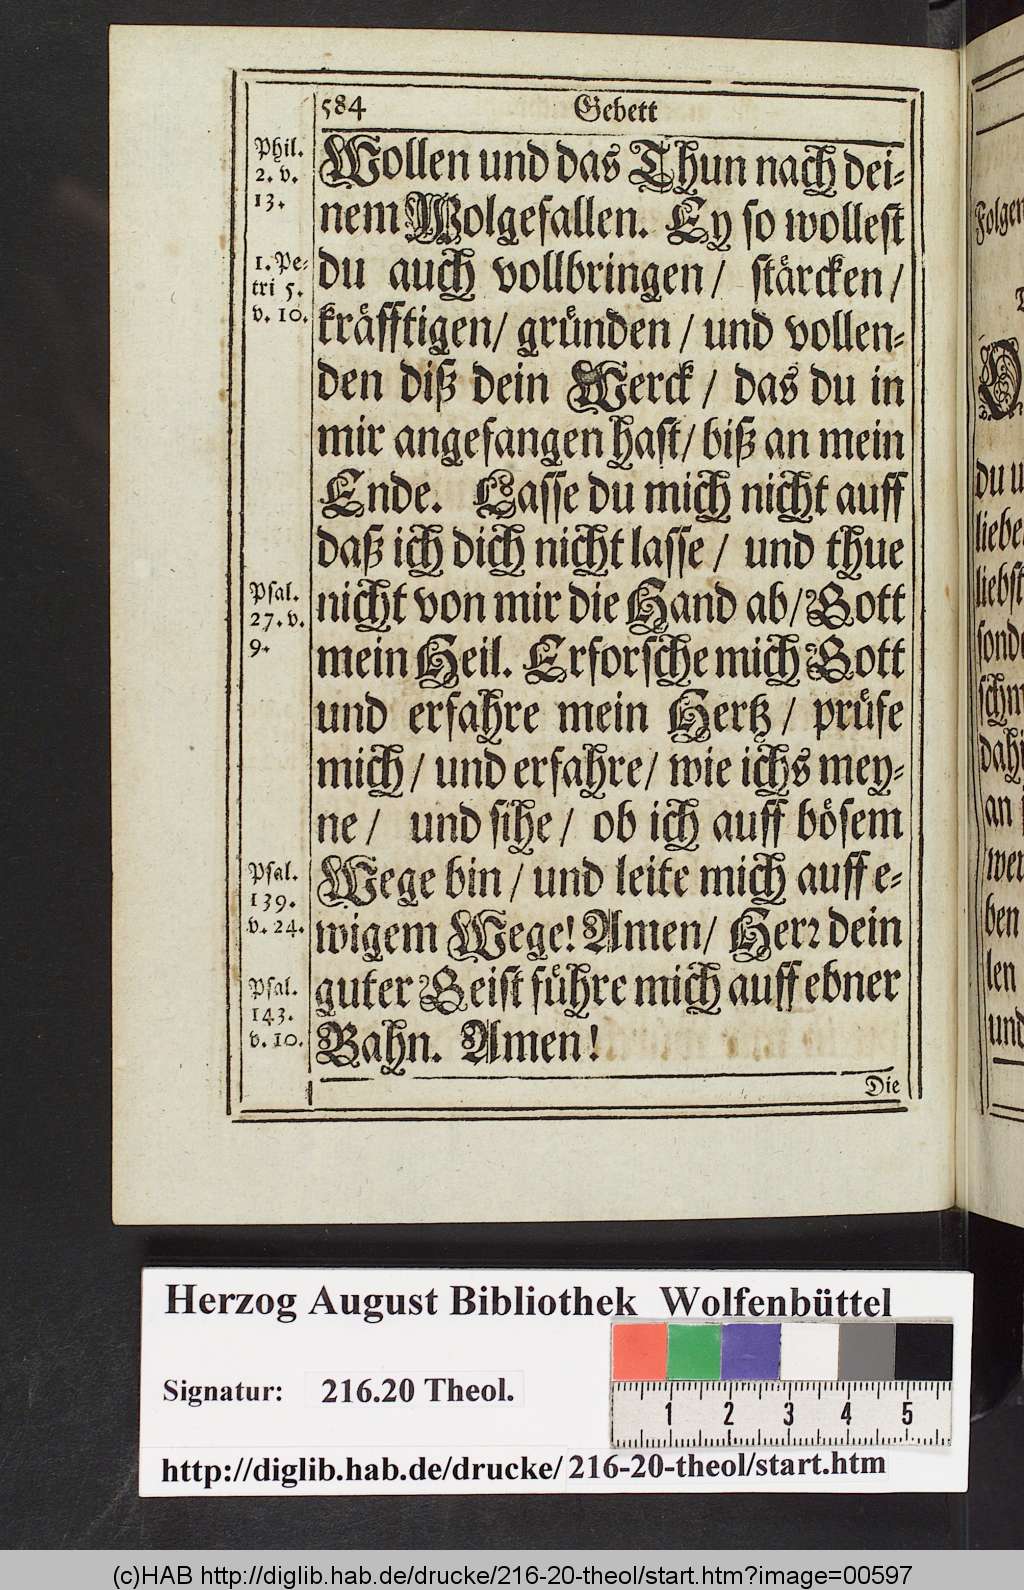 584 Gebett
Phil.
2. v.
13.
1. Pe-
tri 5.
v. 10.
Psal.
27. v.
9.
Psal.
139.
v. 24.
Psal.
143.
v. 10.
Wollen und das Thun nach dei-
nem Wolgefallen. Ey so wollest
du auch vollbringen / stärcken /
kräfftigen / gründen / und vollen-
den diß dein Werck / das du in
mir angefangen hast / biß an mein
Ende. Lasse du mich nicht auff
daß ich dich nicht lasse / und thue
nicht von mir die Hand ab / Gott
mein Heil. Erforsche mich Gott
und erfahre mein Hertz / prüfe
mich / und erfahre / wie ichs mey-
ne / und sihe / ob ich auff bösem
Wege bin / und leite mich auff e-
wigem Wege! Amen / Herr dein
guter Geist führe mich auff ebner
Bahn. Amen!
Die
du u
an
ben
len
und
Herzog August Bibliothek Wolfenbüttel
Signatur: 216.20 Theol.
1 2 3 4 5
http://diglib.hab.de/drucke/216-20-theol/start.htm
(c)HAB http://diglib.hab.de/drucke/216-20-theol/start.htm?image=00597